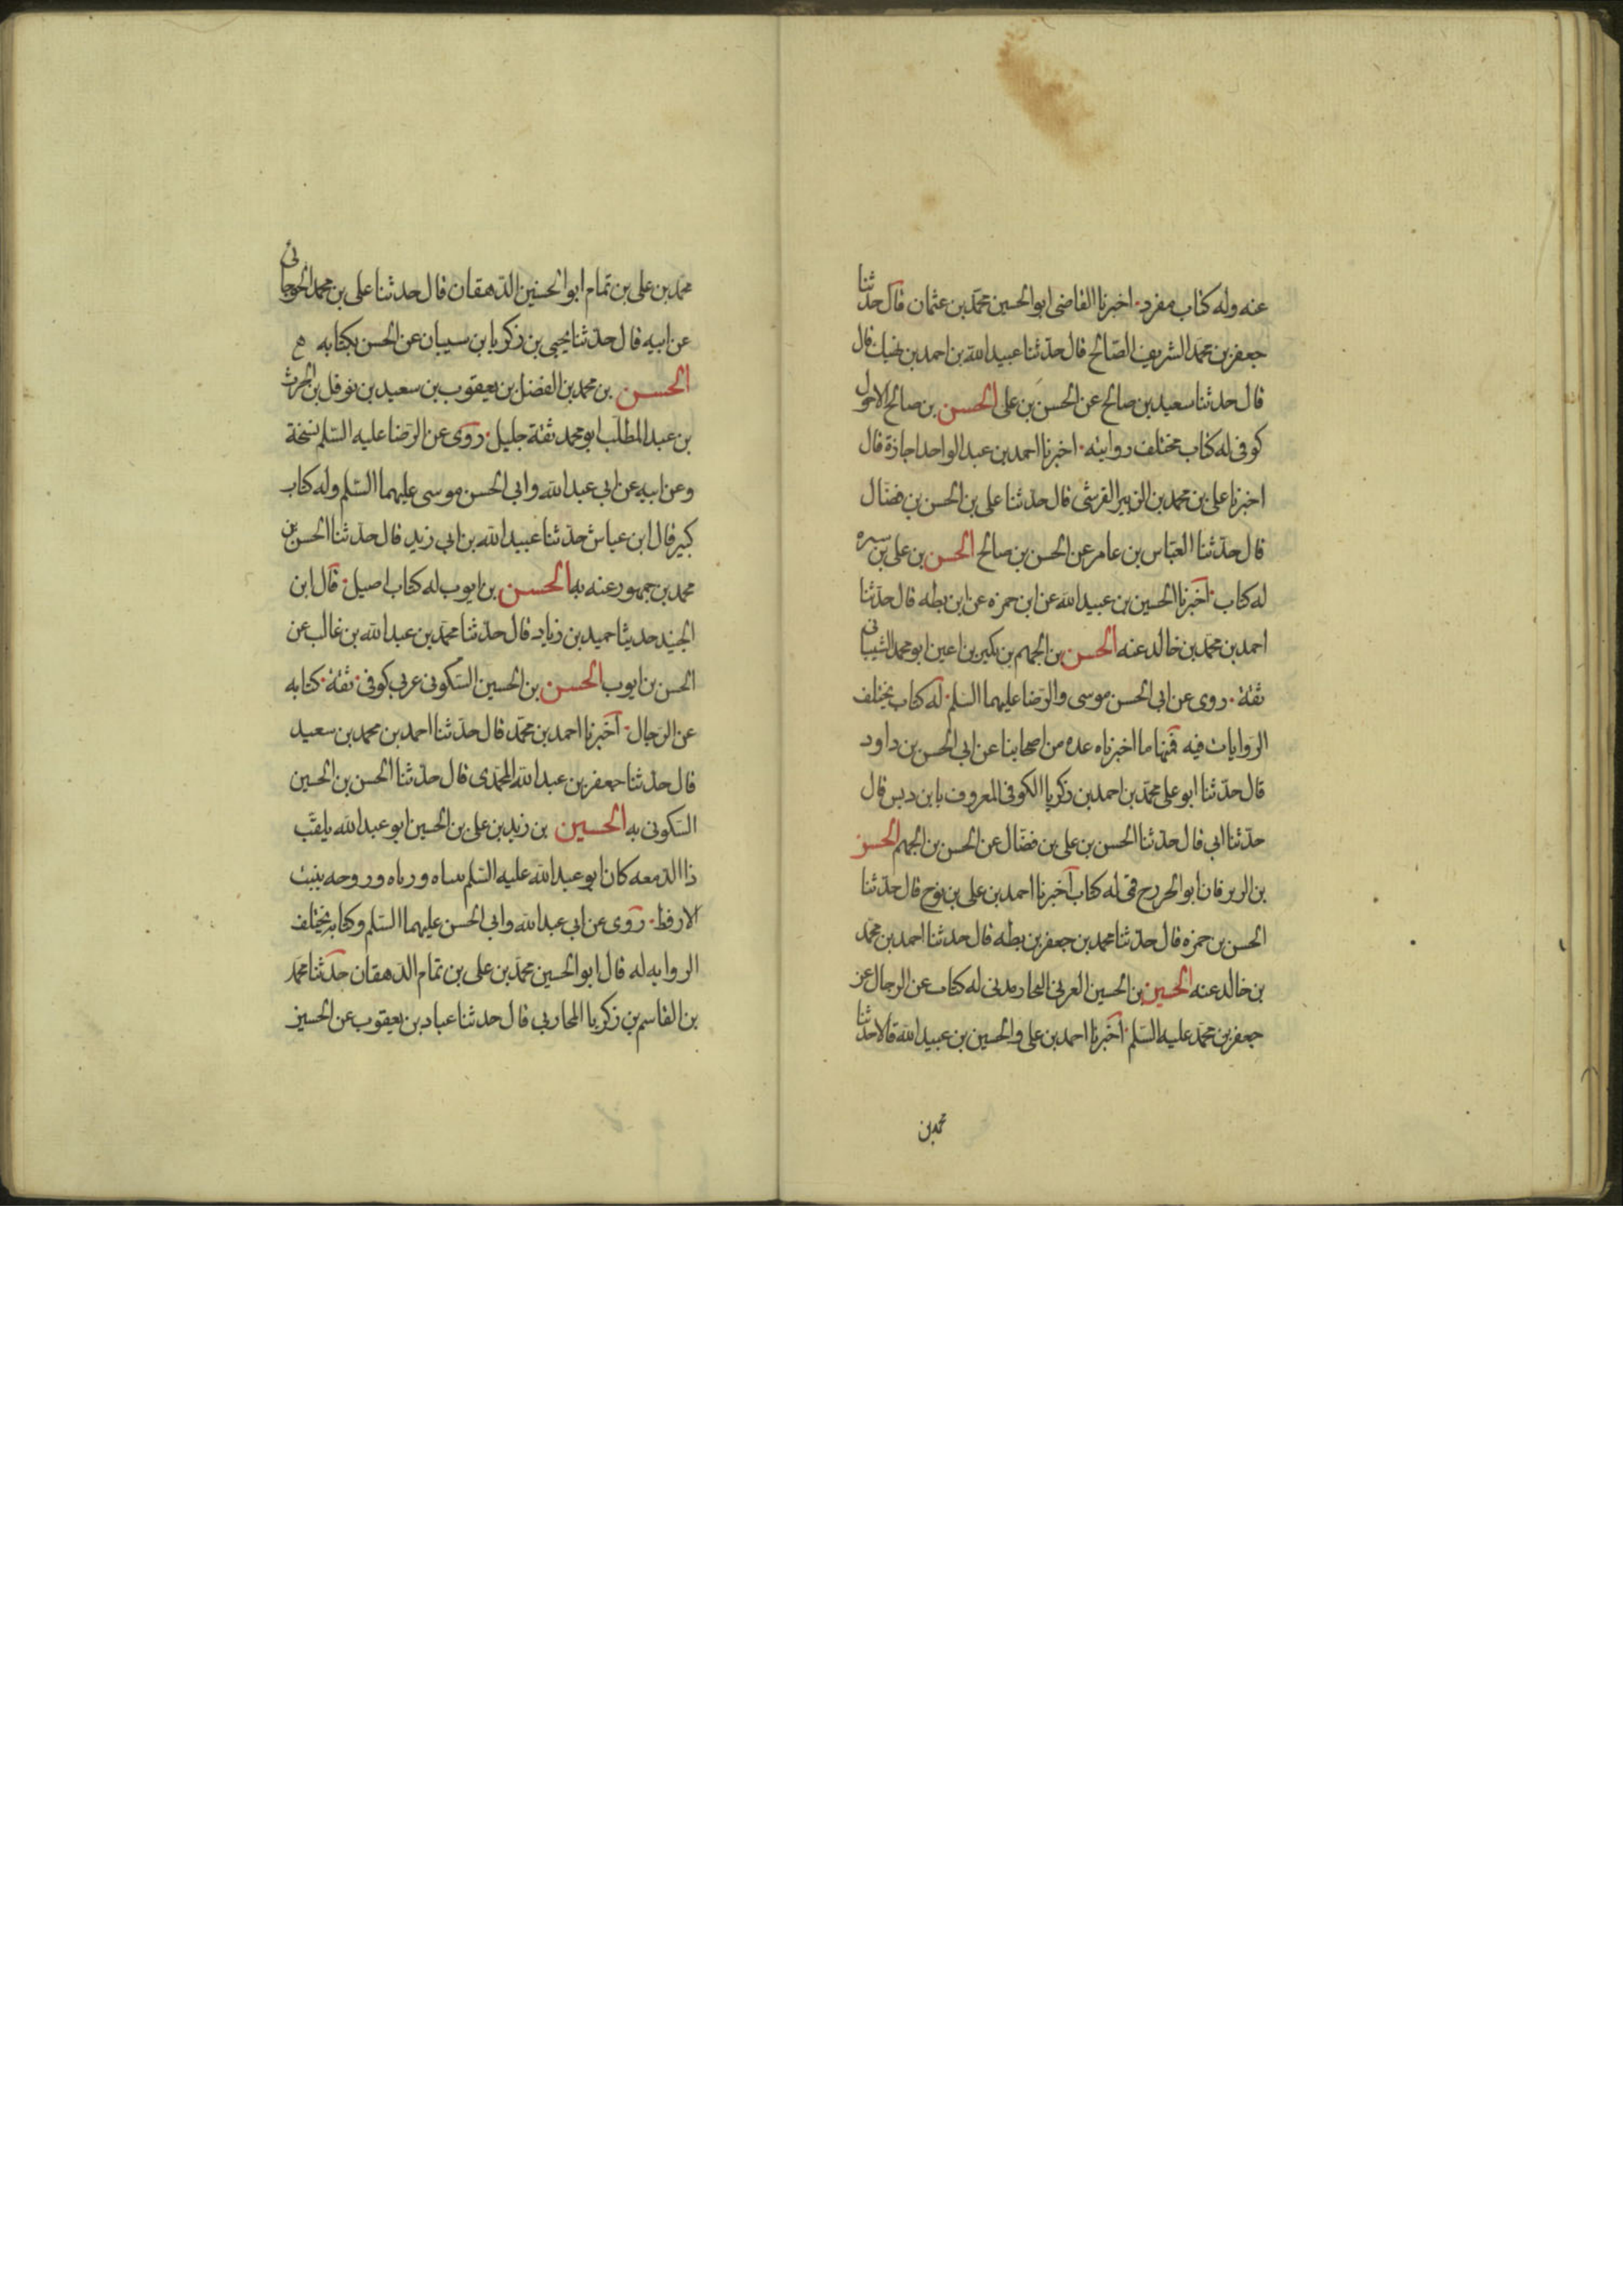 عنه وله كتاب مفرد اخبرنا القاضى ابو الحسين محمد بن عثمان قال حدثنا
جعفر بن محمد الشريف الصالح قال حدثنا عبيد الله بن احمد بن نهيك قال
قال حدثنا سعيد بن صالح عن الحسن بن على الحسن بن صالح الاحول
كوفى له كتاب مختلف روايته اخبرنا احمد بن عبد الواحد اجازة قال
اخبرنا على بن محمد بن الزبير القرشى قال حدثنا على بن الحسن بن فضال
قال حدثنا العباس بن عامر عن الحسن بن صالح الحسن بن على بن سبره
له كتاب اخبرنا الحسين بن عبيد الله عن ابن حمزه عن ابن بطه قال حدثنا
احمد بن محمد بن خالد عنه الحسن بن الجهم بن بكير بن اعين ابو محمد الشيبانى
ثقة روى عن ابى الحسن موسى والرضا عليهما السلم له كتاب يختلف
الروايات فيه فمنها ما اخبرناه عده من اصحابنا عن ابى الحسن بن داود
قال حدثنا ابو على محمد بن احمد بن زكريا الكوفى المعروف بابن دبس قال
حدثنا ابى قال حدثنا الحسن بن على بن فضال عن الحسن بن الجهم الحسن
بن الزبرقان ابو الخزرج قمى له كتاب اخبرنا احمد بن على بن نوح قال حدثنا
الحسن بن حمزه قال حدثنا محمد بن جعفر بن بطه قال حدثنا احمد بن محمد
بن خالد عنه الحسين بن الحسين العرنى النجار مدنى له كتاب عن الرجال عن
جعفر بن محمد عليه السلم اخبرنا احمد بن على والحسين بن عبيد الله قالا حدثنا
محمد بن
محمد بن على بن تمام ابو الحسين الدهقان قال حدثنا على بن محمد الجرجانى
عن ابيه قال حدثنا يحيى بن زكريا بن سيبان عن الحسن بكتابه
الحسن بن محمد بن الفضل بن يعقوب بن سعيد بن نوفل بن الحرث
بن عبد المطلب ابو محمد ثقة جليل روى عن الرضا عليه السلم نسخة
وعن ابيه عن ابى عبد الله وابى الحسن موسى عليهما السلم وله كتاب
كبير قال ابن عياش حدثنا عبيد الله بن ابى زيد قال حدثنا الحسن بن
محمد بن جمهور عنه به الحسن بن ايوب له كتاب اصيل قال ابن
الجنيد حدثنا حميد بن زياد قال حدثنا محمد بن عبد الله بن غالب عن
الحسن بن ايوب الحسن بن الحسين السكونى عربى كوفى ثقة كتابه
عن الرجال اخبرنا احمد بن محمد قال حدثنا احمد بن محمد بن سعيد
قال حدثنا جعفر بن عبد الله المحمدى قال حدثنا الحسن بن الحسين
السكونى به الحسين بن زيد بن على بن الحسين ابو عبد الله يلقب
ذا الدمعه كان ابو عبد الله عليه السلم تبناه ورباه وزوجه بنت
الارقط روى عن ابى عبد الله وابى الحسن عليهما السلم وكتابه يختلف
الروايه له قال ابو الحسين محمد بن على بن تمام الدهقان حدثنا محمد
بن القاسم بن زكريا المحاربى قال حدثنا عباد بن يعقوب عن الحسين